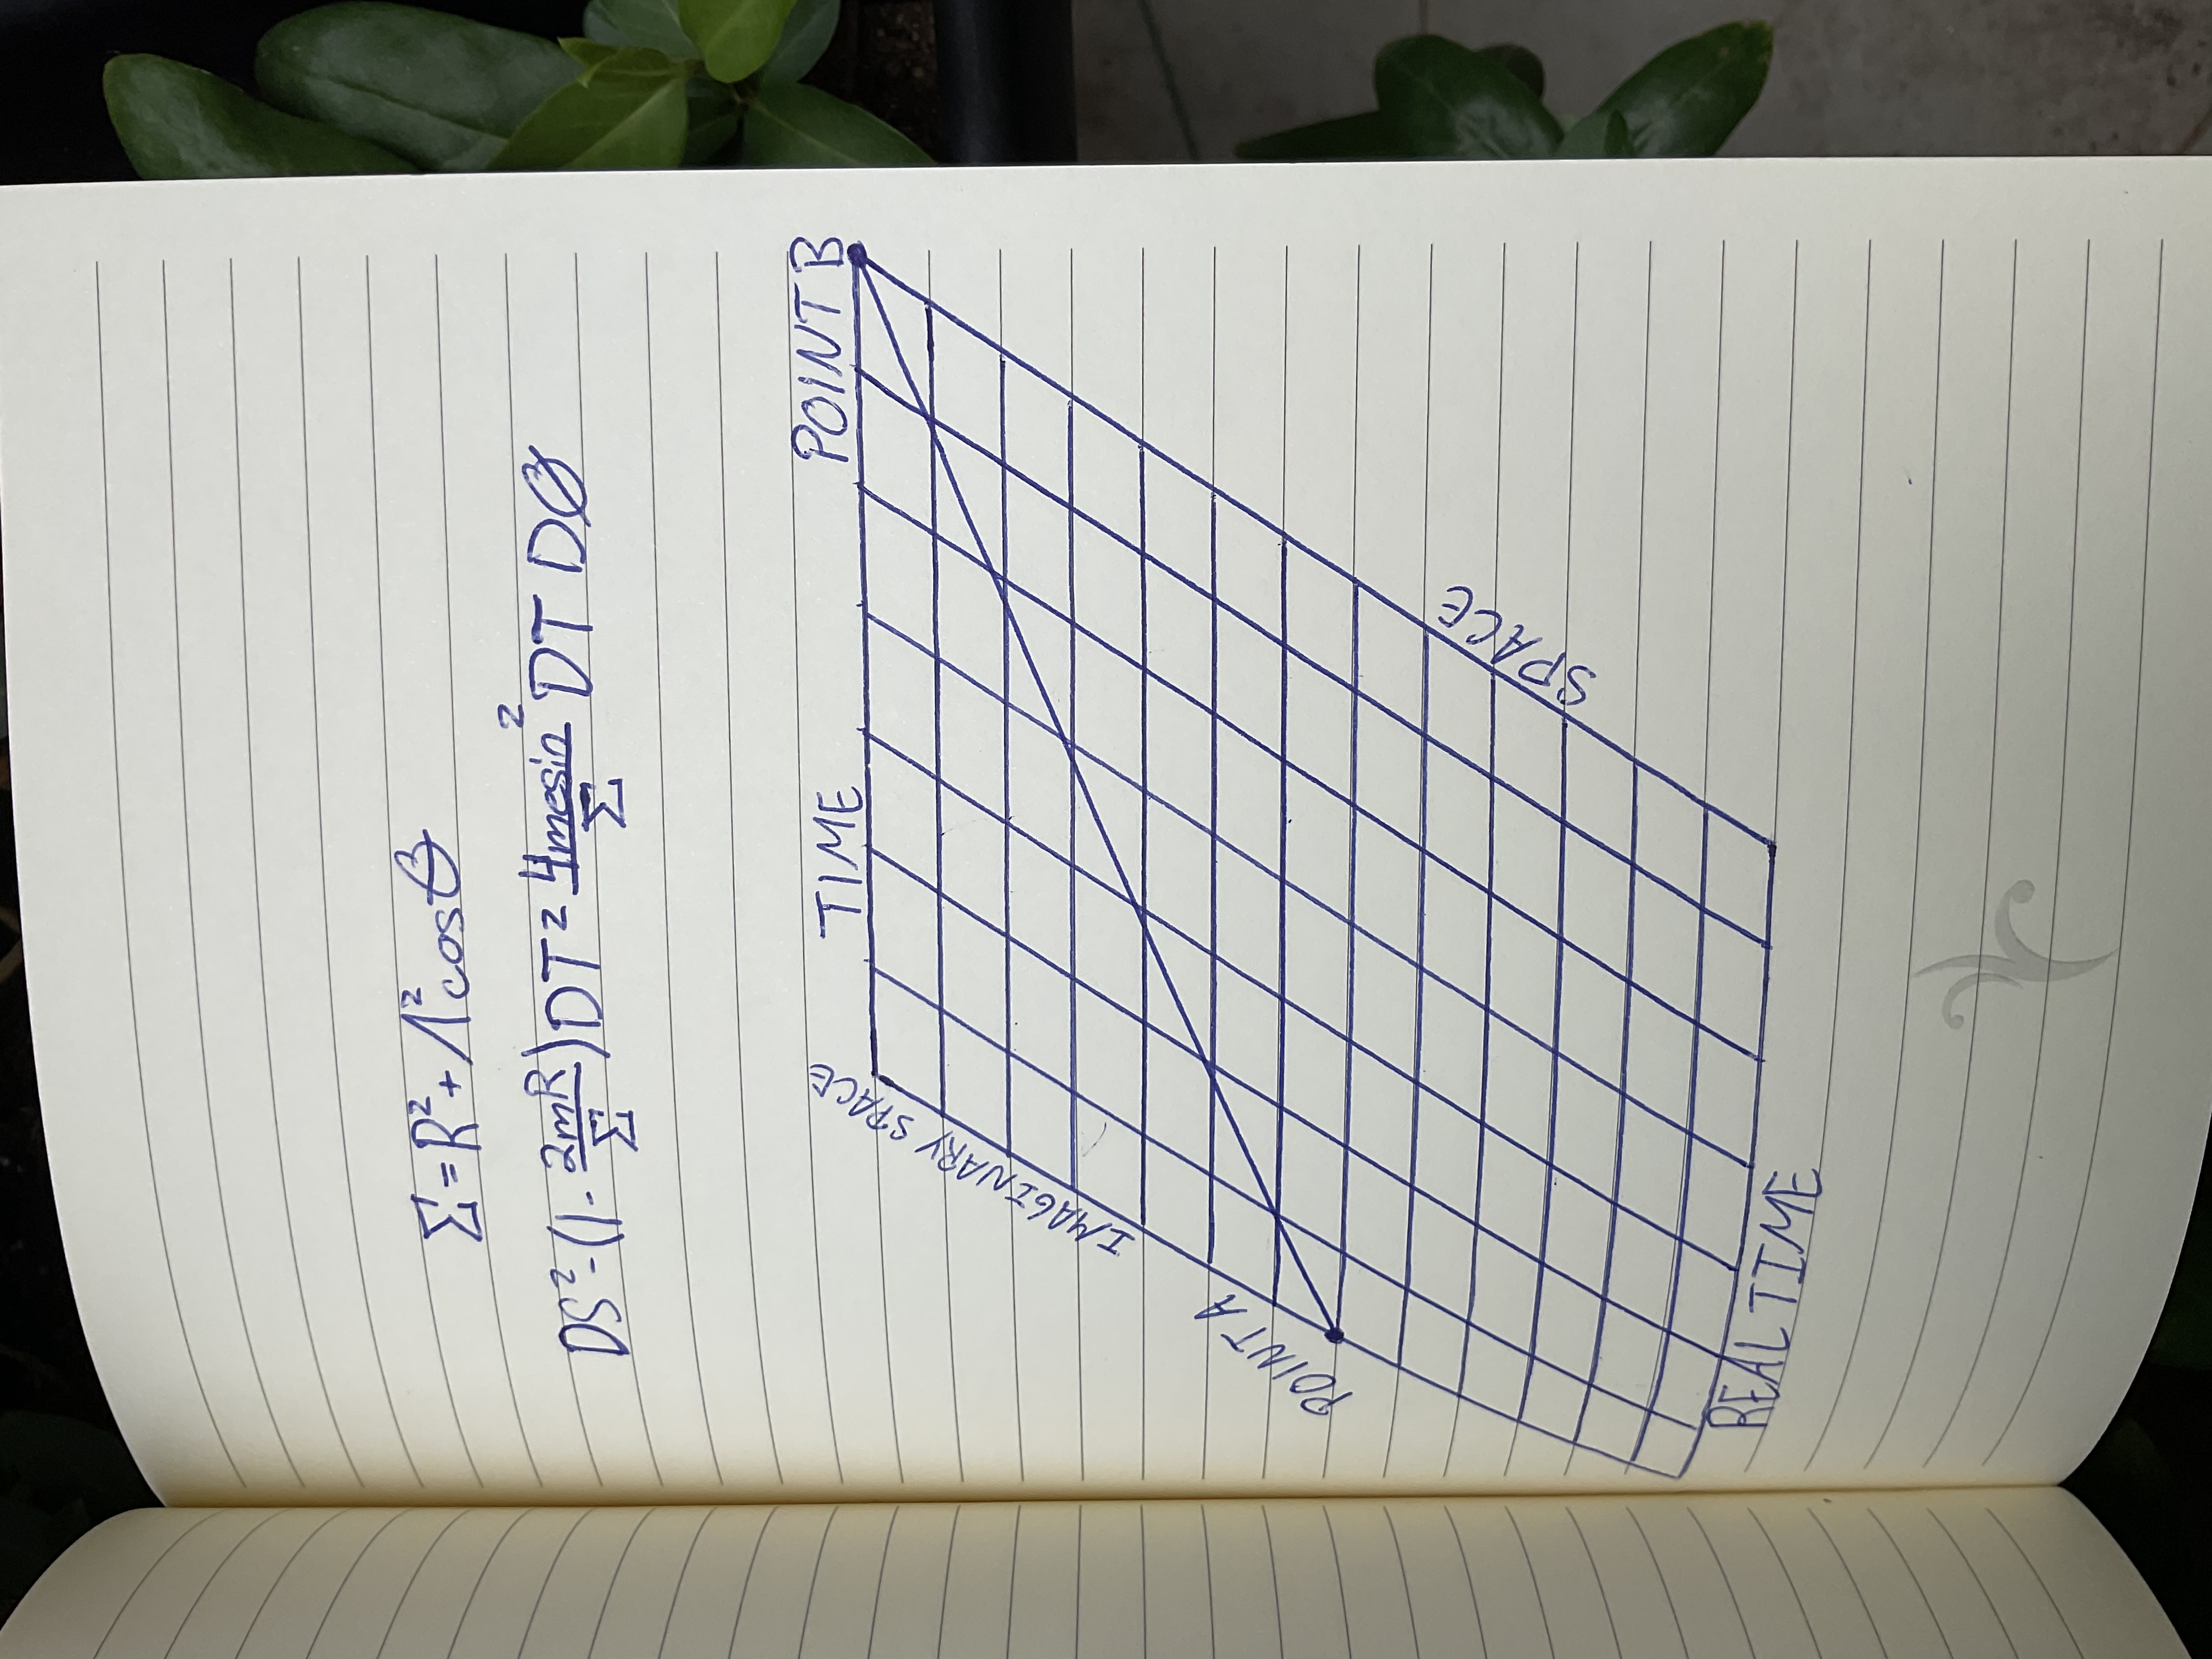 Σ=R²+Λ²cosθ
DS²-(1-2mR/Σ)DT²4mesin²/Σ DT DØ
TIME
POINT B
IMAGINARY SPACE
POINT A
SPACE
REAL TIME